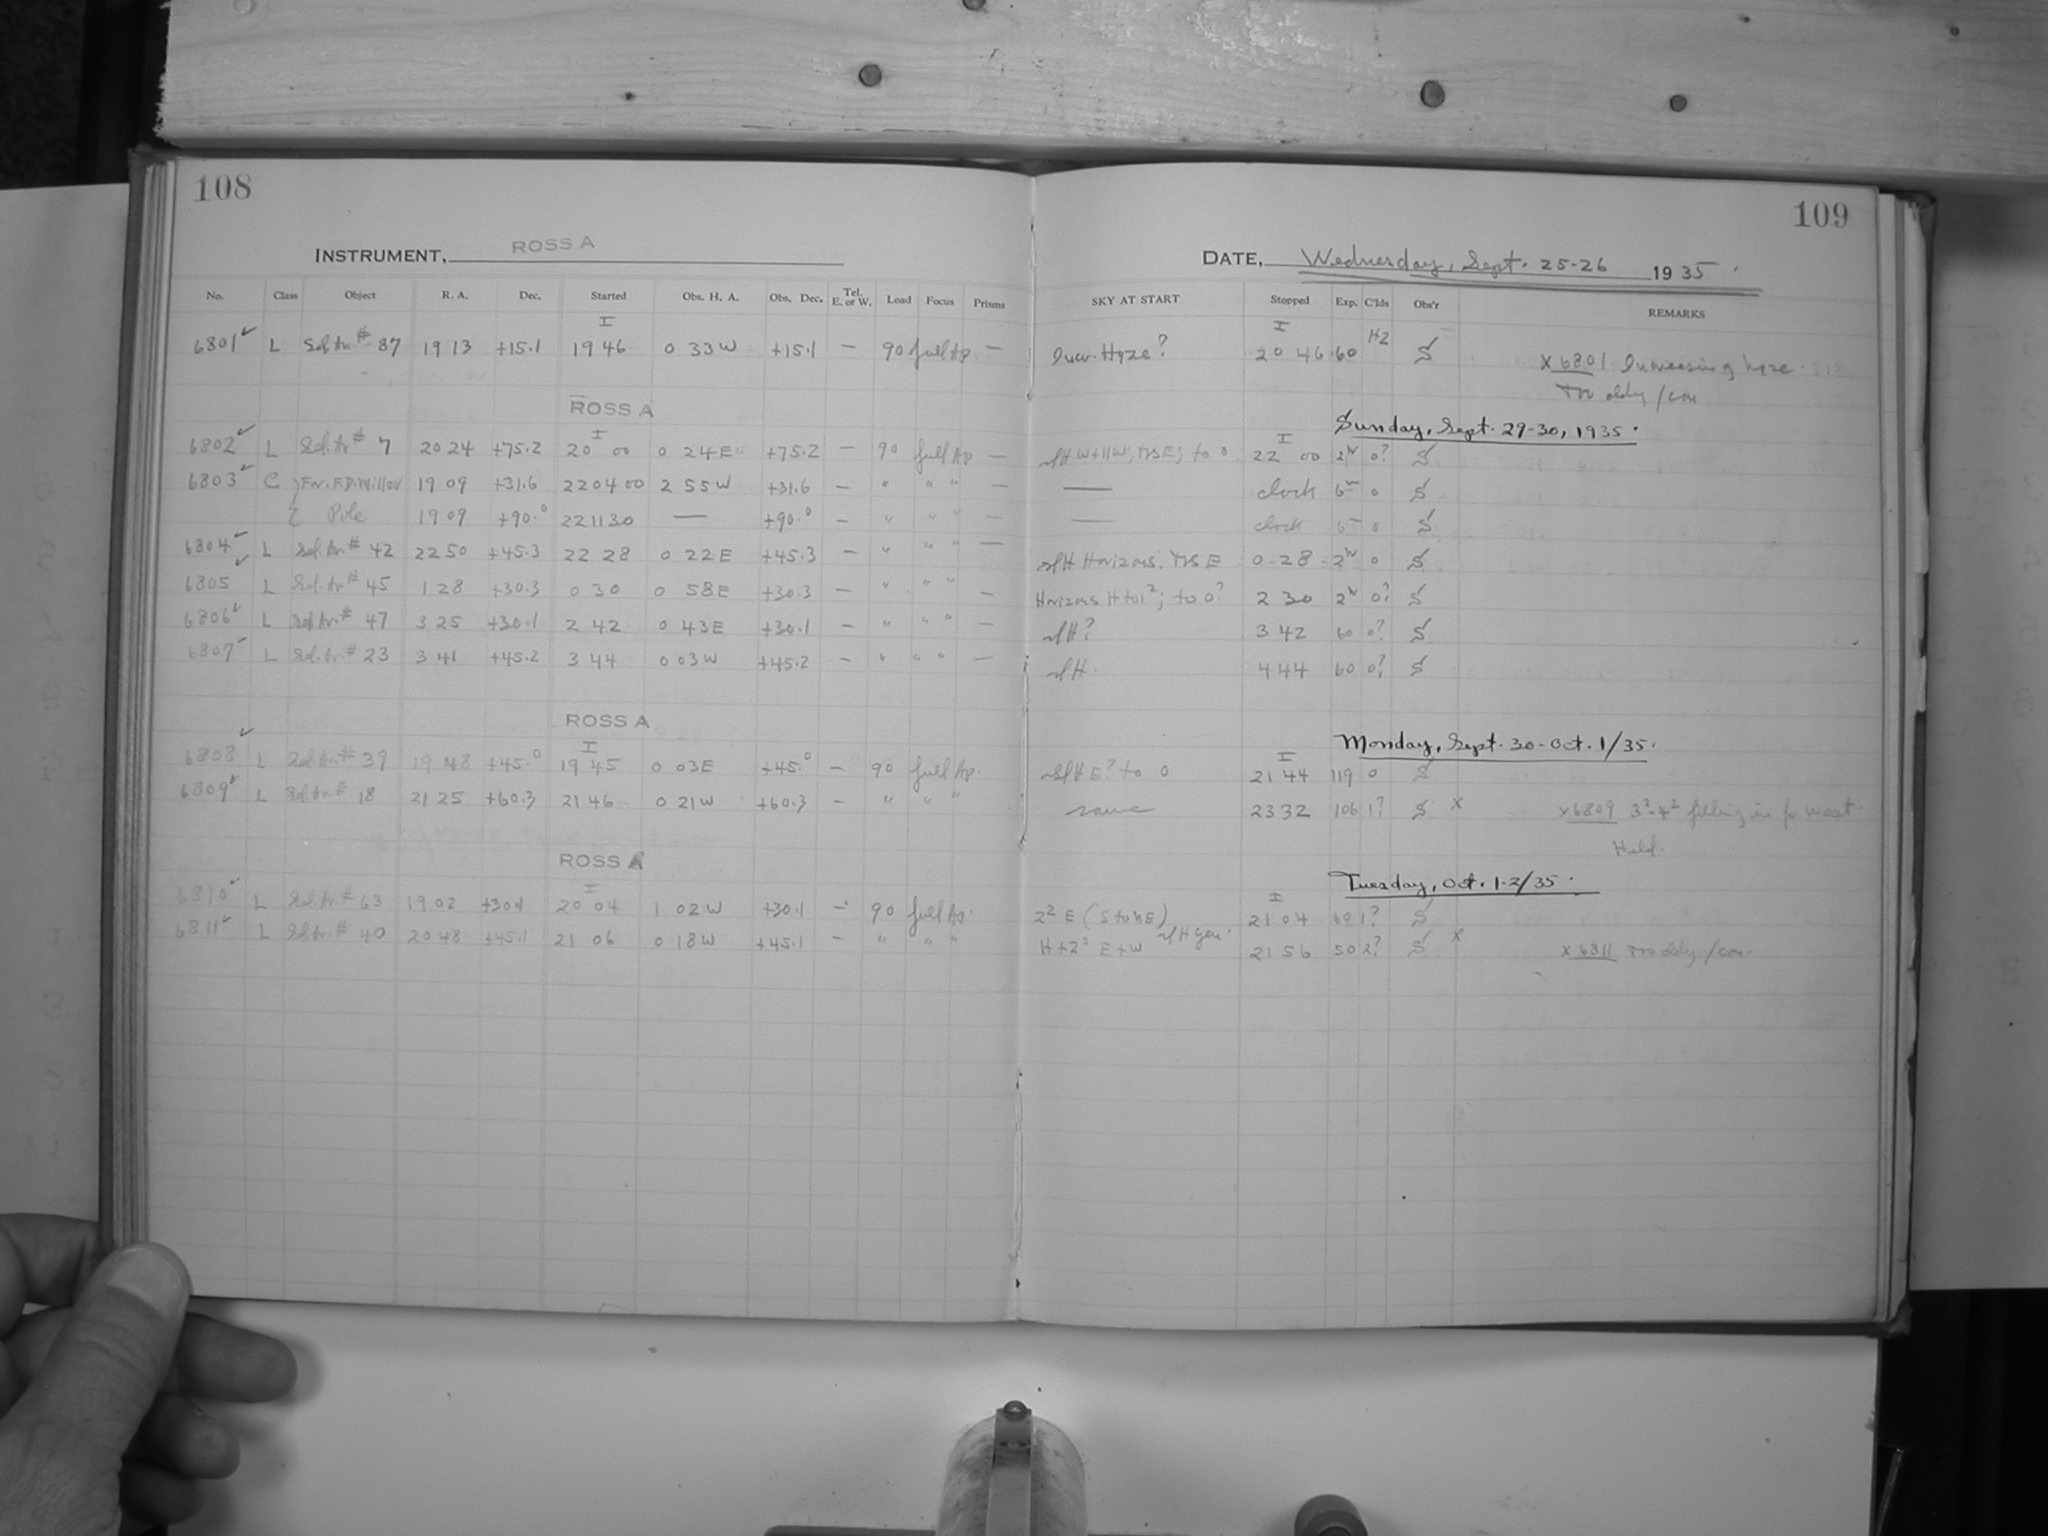 108
INSTRUMENT, ROSS A
No. Class Object R. A. Dec. Started Obs. H. A. Obs. Dec. Tel. E. or W. Load Focus Prisms
I
6801 ✓ L Sel. Ar. # 87 19 13 +15.1 19 46 0 33 W +15.1 — 90 full Ap —
ROSS A
I
6802 ✓ L Sel. Ar # 7 20 24 +75.2 20 00 0 24 E +75.2 — 90 full Ap —
6803 ✓ C For. F.D. Miller 19 09 +31.6 22 04 00 2 55 W +31.6 — " " " —
Pole 19 09 +90.0 22 11 30 — +90.0 — " " " —
6804 ✓ L Sel. Ar. # 42 22 50 +45.3 22 28 0 22 E +45.3 — " " " —
6805 ✓ L Sel. Ar # 45 1 28 +30.3 0 30 0 58 E +30.3 — " " " —
6806 ✓ L Sel Ar. # 47 3 25 +30.1 2 42 0 43 E +30.1 — " " " —
6807 ✓ L Sel. Ar. # 23 3 41 +45.2 3 44 0 03 W +45.2 — " " " —
ROSS A
I
6808 ✓ L Sel Ar. # 39 19 48 +45.0 19 45 0 03 E +45.0 — 90 full Ap.
6809 ✓ L Sel Ar # 18 21 25 +60.3 21 46 0 21 W +60.3 — " " "
ROSS A
I
6810 ✓ L Sel. Ar # 63 19 02 +30.1 20 04 1 02 W +30.1 — 90 full Ap.
6811 ✓ L Sel Ar. # 40 20 48 +45.1 21 06 0 18 W +45.1 — " " "
109
DATE, Wednesday, Sept. 25-26 1935.
SKY AT START Stopped Exp. C'lds Obs'r REMARKS
I
Incr. Haze? 20 46 60 HZ S x 6801 Increasing haze.
Sunday, Sept. 29-30, 1935.
I
to 0 22 00 2h 0? S
— clock 6m 0 S
— clock 6m 0 S
Horizons, E 0 28 2h 0 S
Horizons H to 1²; to 0? 2 30 2h 0? S
H? 3 42 60 0? S
H. 4 44 60 0? S
Monday, Sept. 30-Oct. 1/35.
I
E? to 0 21 44 119 0 S
same 23 32 106 1? S x x6809 3²-4² filling in fr West.
Held.
Tuesday, Oct. 1-2/35.
I
2² E (S to NE) 21 04 60 1? S
H gen.
H+2² E+W 21 56 50 2? S x x 6811